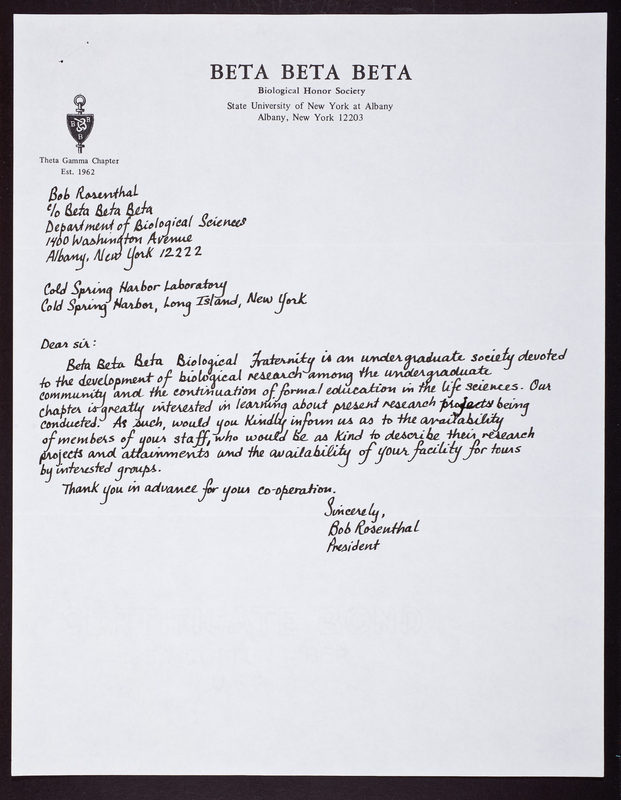 BETA BETA BETA
Biological Honor Society
State University of New York at Albany
Albany, New York 12203
B B
B
Theta Gamma Chapter
Est. 1962
Bob Rosenthal
c/o Beta Beta Beta
Department of Biological Sciences
1400 Washington Avenue
Albany, New York 12222
Cold Spring Harbor Laboratory
Cold Spring Harbor, Long Island, New York
Dear sir:
Beta Beta Beta Biological Fraternity is an undergraduate society devoted
to the development of biological research among the undergraduate
community and the continuation of formal education in the life sciences. Our
chapter is greatly interested in learning about present research projects being
conducted. As such, would you kindly inform us as to the availability
of members of your staff, who would be as kind to describe their research
projects and attainments and the availability of your facility for tours
by interested groups.
Thank you in advance for your co-operation.
Sincerely,
Bob Rosenthal
President